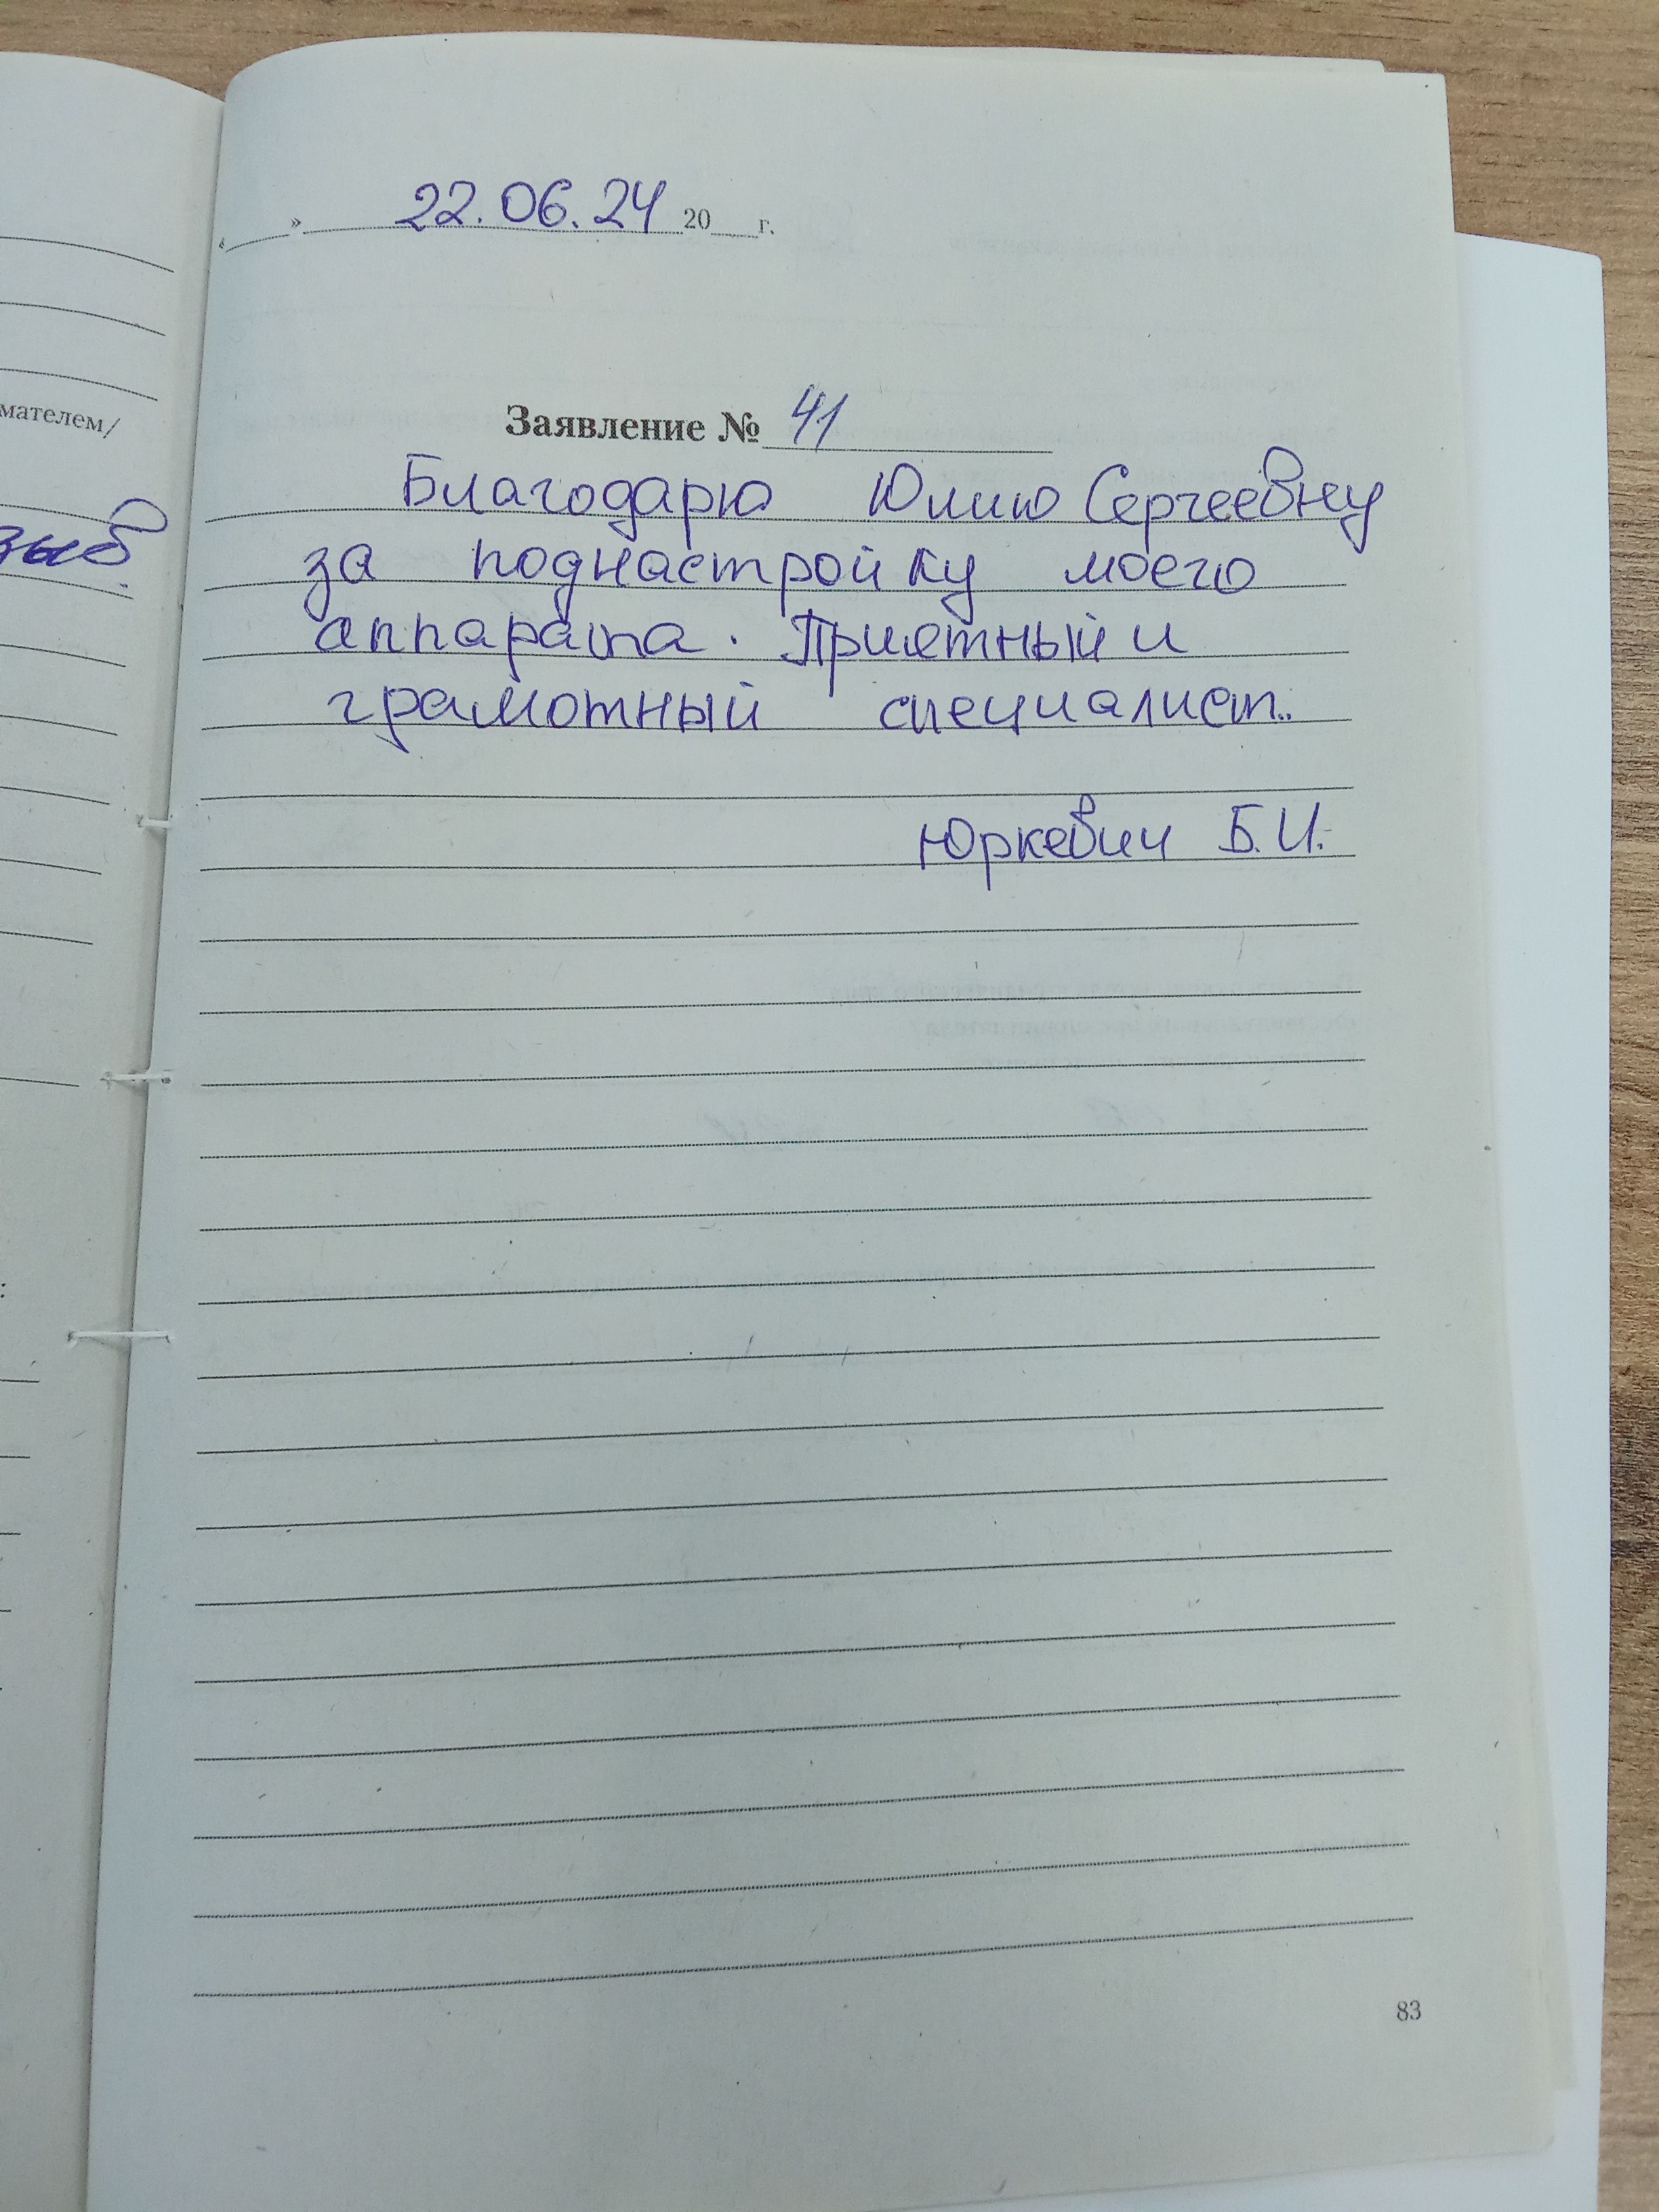 мателем/
« » 22.06.24 20 г.
Заявление № 41
Благодарю Юлию Сергеевну
за поднастройку моего
аппарата. Приятный и
грамотный специалист..
Юркевич Б.И.
83